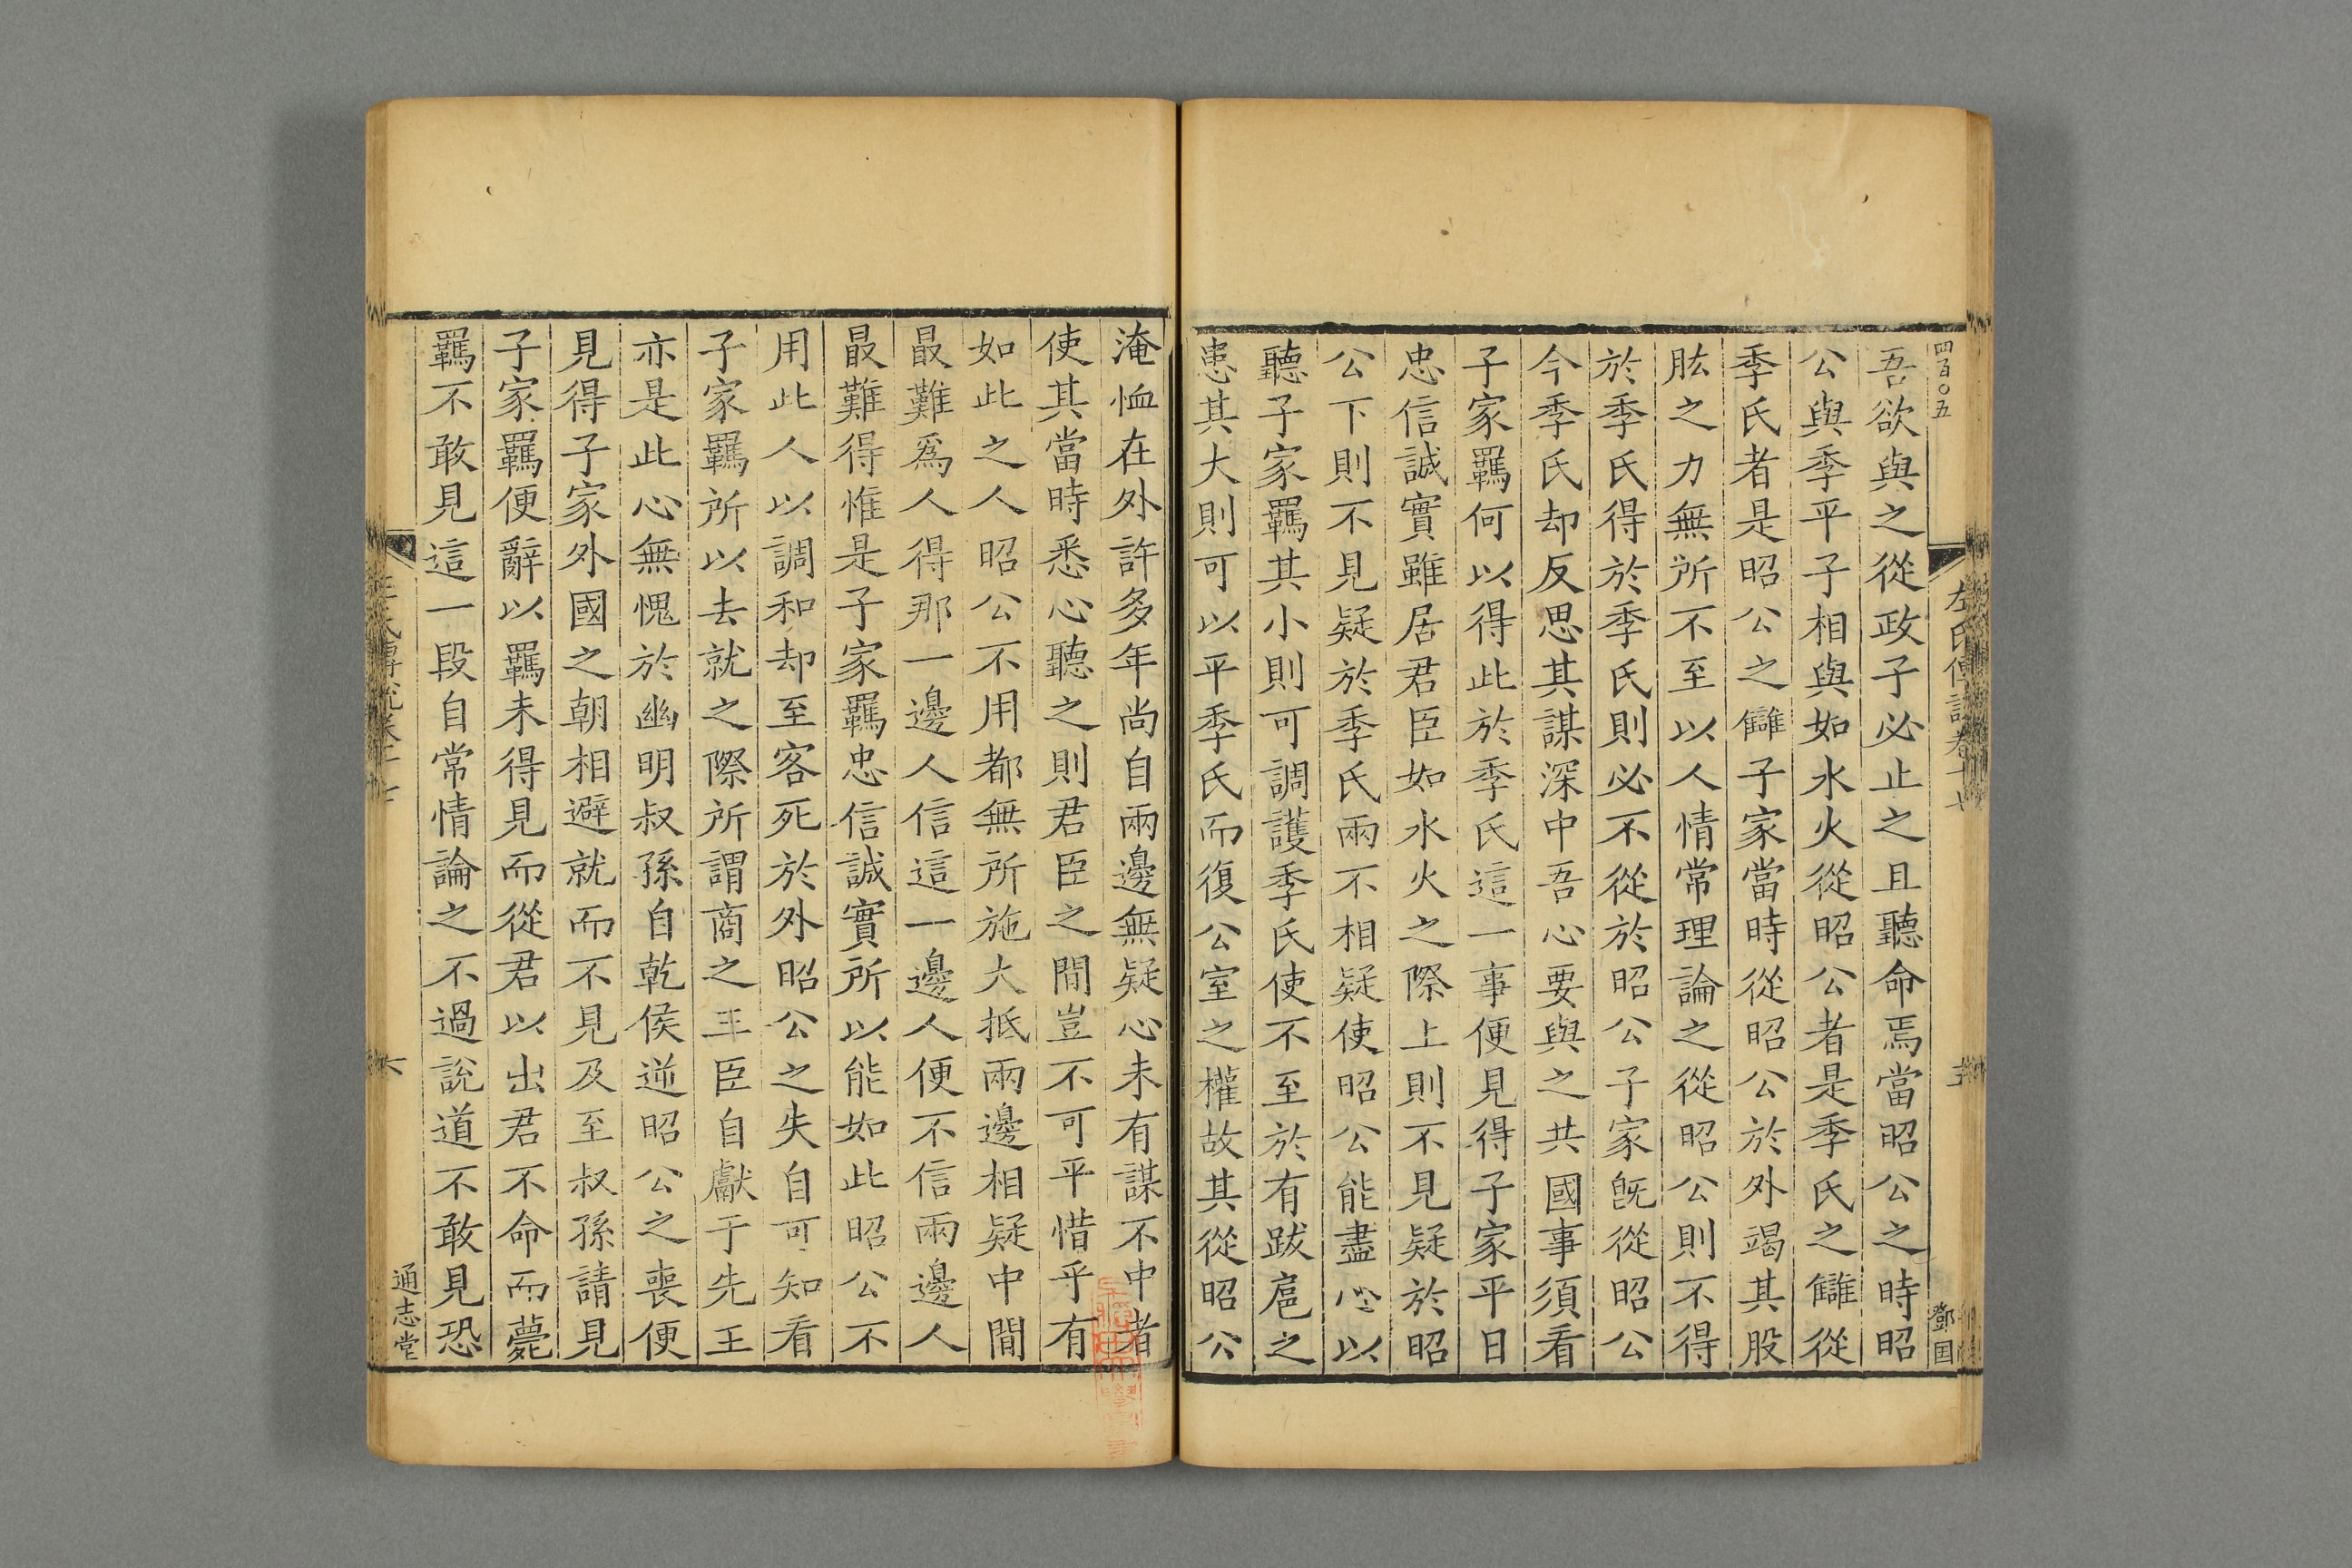 四百〇五
左氏傳説卷十七
五
鄧国
吾欲與之從政子必止之且聽命焉當昭公之時昭
公與季平子相與如水火從昭公者是季氏之讎從
季氏者是昭公之讎子家當時從昭公於外竭其股
肱之力無所不至以人情常理論之從昭公則不得
於季氏得於季氏則必不從於昭公子家旣從昭公
今季氏却反思其謀深中吾心要與之共國事須看
子家羈何以得此於季氏這一事便見得子家平日
忠信誠實雖居君臣如水火之際上則不見疑於昭
公下則不見疑於季氏兩不相疑使昭公能盡心以
聽子家羈其小則可調護季氏使不至於有跋扈之
患其大則可以平季氏而復公室之權故其從昭公
淹恤在外許多年尚自兩邊無疑心未有謀不中者
使其當時悉心聽之則君臣之間豈不可平惜乎有
如此之人昭公不用都無所施大抵兩邊相疑中間
最難爲人得那一邊人信這一邊人便不信兩邊人
最難得惟是子家羈忠信誠實所以能如此昭公不
用此人以調和却至客死於外昭公之失自可知看
子家羈所以去就之際所謂商之王臣自獻于先王
亦是此心無愧於幽明叔孫自乾侯逆昭公之喪便
見得子家外國之朝相避就而不見及至叔孫請見
子家羈便辭以羈未得見而從君以出君不命而薨
羈不敢見這一段自常情論之不過說道不敢見恐
左氏傳說卷十七
六
通志堂